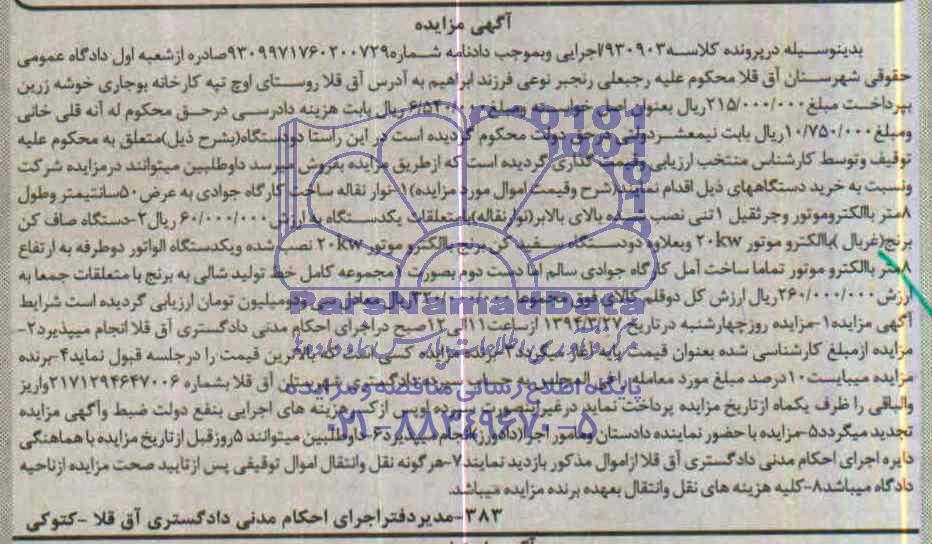 آگهی مزایده
بدینوسیله درپرونده کلاسه ۹۳۰۹۰۳/اجرایی وبموجب دادنامه شماره ۹۳۰۹۹۷۱۷۶۰۲۰۰۷۲۹صادره ازشعبه اول دادگاه عمومی
حقوقی شهرستان آق قلا محکوم علیه رجبعلی رنجبر نوعی فرزند ابراهیم به آدرس آق قلا روستای اوچ تپه کارخانه بوجاری خوشه زرین
بپرداخت مبلغ ۲۱۵/۰۰۰/۰۰۰ریال بعنوان اصل خواسته ومبلغ ریال بابت هزینه دادرسی درحق محکوم له آنه قلی خانی
ومبلغ ۱۰/۷۵۰/۰۰۰ریال بابت نیمعشردولتی درحق دولت محکوم گردیده است در این راستا دودستگاه(بشرح ذیل)متعلق به محکوم علیه
توقیف وتوسط کارشناس منتخب ارزیابی وقیمت گذاری گردیده است که ازطریق مزایده بفروش میرسد داوطلبین میتوانند درمزایده شرکت
ونسبت به خرید دستگاههای ذیل اقدام نمایند(شرح وقیمت اموال مورد مزایده)۱-نوار نقاله ساخت کارگاه جوادی به عرض ۵۰سانتیمتر وطول
۸متر باالکتروموتور وجرثقیل ۱تنی نصب شده بالای بالابر(نوارنقاله)بامتعلقات یکدستگاه به ارزش ۶۰/۰۰۰/۰۰۰ ریال۲-دستگاه صاف کن
برنج(غربال )باالکترو موتور ۲۰kw وبعلاوه دودستگاه سفید کن برنج باالکترو موتور ۲۰kw نصب شده ویکدستگاه الواتور دوطرفه به ارتفاع
۸متر باالکترو موتور تماما ساخت آمل کارگاه جوادی سالم اما دست دوم بصورت ۱مجموعه کامل خط تولید شالی به برنج با متعلقات جمعا به
ارزش ۲۶۰/۰۰۰/۰۰۰ریال ارزش کل دوقلم کالای فوق مجموعا ۳۲۰/۰۰۰/۰۰۰ریال معادل سی ودومیلیون تومان ارزیابی گردیده است شرایط
آگهی مزایده۱-مزایده روزچهارشنبه درتاریخ ۱۳۹۴/۳/۲۷ ازساعت۱۱الی۱۲صبح دراجرای احکام مدنی دادگستری آق قلا انجام میپذیرد۲-
مزایده ازمبلغ کارشناسی شده بعنوان قیمت پایه آغاز میگردد۳-برنده مزایده کسی است که بالاترین قیمت را درجلسه قبول نماید۴-برنده
مزایده میبایست۱۰درصد مبلغ مورد معامله را فی المجلس به حساب سپرده دادگستری شهرستان آق قلا بشماره ۲۱۷۱۲۹۴۶۴۷۰۰۶واریز
والباقی را ظرف یکماه ازتاریخ مزایده پرداخت نماید درغیراینصورت سپرده اوپس ازکسرهزینه های اجرایی بنفع دولت ضبط وآگهی مزایده
تجدید میگردد۵-مزایده با حضور نماینده دادستان ومامور اجرا(دادورز)انجام میپذیرد۶-داوطلبین میتوانند ۵روزقبل ازتاریخ مزایده با هماهنگی
دایره اجرای احکام مدنی دادگستری آق قلا ازاموال مذکور بازدید نمایند۷-هرگونه نقل وانتقال اموال توقیفی پس ازتایید صحت مزایده ازناحیه
دادگاه میباشد۸-کلیه هزینه های نقل وانتقال بعهده برنده مزایده میباشد.
۳۸۳-مدیردفتراجرای احکام مدنی دادگستری آق قلا -کتوکی
ParsNamadData
پایگاه اطلاع رسانی مناقصه و مزایده
۰۲۱-۸۸۳۴۹۶۷۰-۵